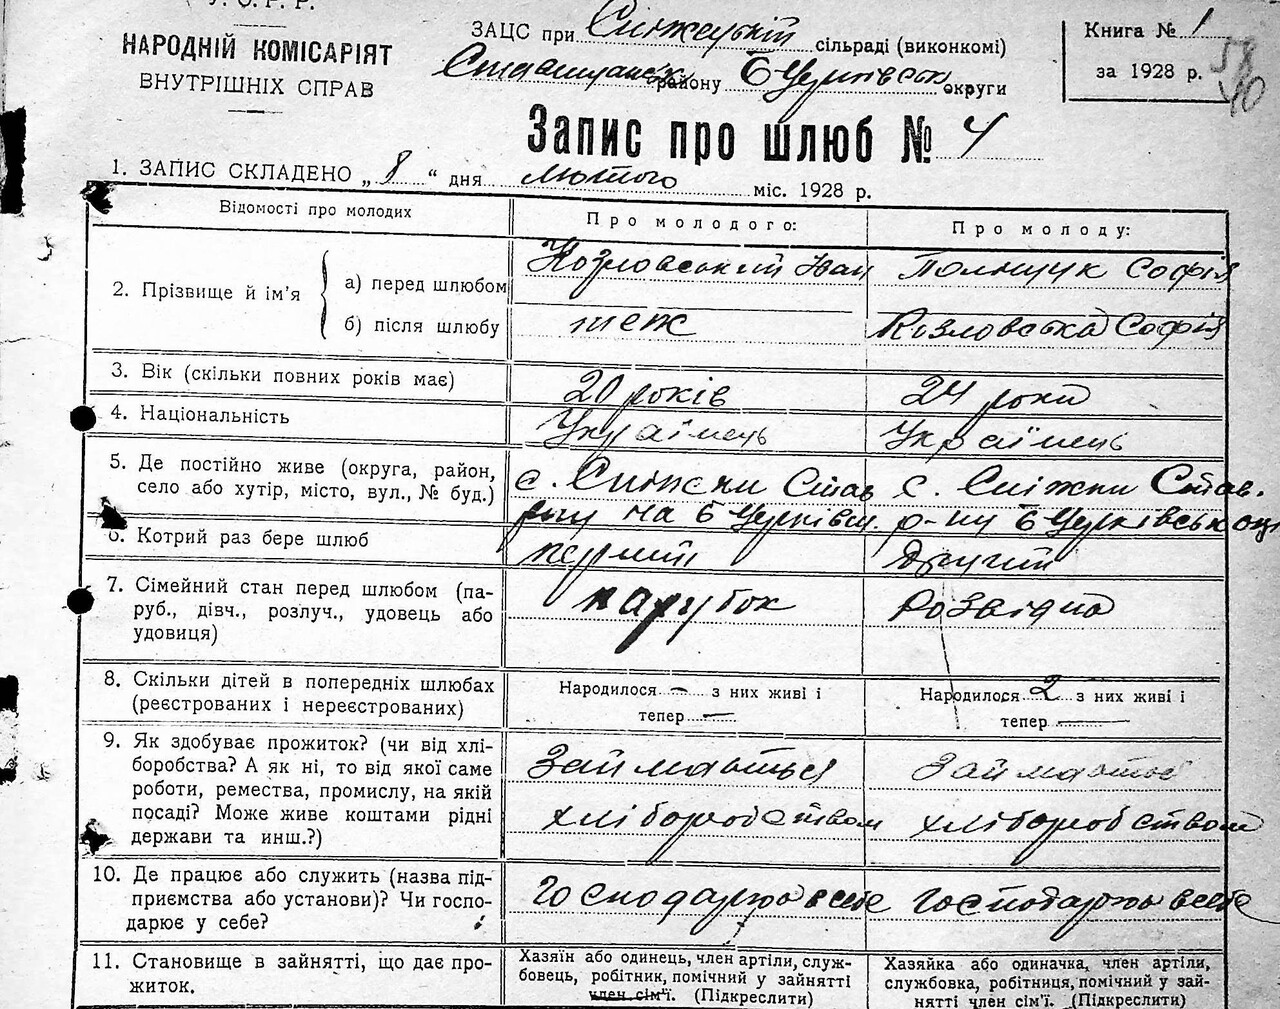 У. С. Р. Р.
НАРОДНІЙ КОМІСАРІЯТ
ВНУТРІШНІХ СПРАВ
ЗАЦС при Сніжецькій сільраді (виконкомі)
Ставищанськ району Б Церківськ округи
Книга № 1
за 1928 р.
58
40
Запис про шлюб № 4
1. ЗАПИС СКЛАДЕНО „ 8 “ дня лютого міс. 1928 р.
Відомості про молодих
Про молодого:
Про молоду:
2. Прізвище й ім'я
а) перед шлюбом
Козловський Іван
Поліщук Софія
б) після шлюбу
теж
Козловська Софія
3. Вік (скільки повних років має)
20 років
24 роки
4. Національність
Українець
Українець
5. Де постійно живе (округа, район,
село або хутір, місто, вул., № буд.)
с. Сніжки Став
р-ну на Б Церківськ.
с. Сніжки Став.
р-ну Б Церківськ окр
6. Котрий раз бере шлюб
перший
другий
7. Сімейний стан перед шлюбом (па-
руб., дівч., розлуч., удовець або
удовиця)
парубок
Розвідна
8. Скільки дітей в попередніх шлюбах
(реєстрованих і нереєстрованих)
Народилося — з них живі і
тепер —
Народилося 2 з них живі і
тепер —
9. Як здобуває прожиток? (чи від хлі-
боробства? А як ні, то від якої саме
роботи, ремества, промислу, на якій
посаді? Може живе коштами рідні
держави та инш.?)
Займається
хліборобством
Займається
хліборобством
10. Де працює або служить (назва під-
приємства або установи)? Чи госпо-
дарює у себе?
Господарює в себе
Господарює в себе
11. Становище в зайнятті, що дає про-
житок.
Хазяїн або одинець, член артіли, служ-
бовець, робітник, помічний у зайнятті
член сім'ї. (Підкреслити)
Хазяйка або одиначка, член артіли,
службовка, робітниця, помічний у зай-
нятті член сім'ї. (Підкреслити)